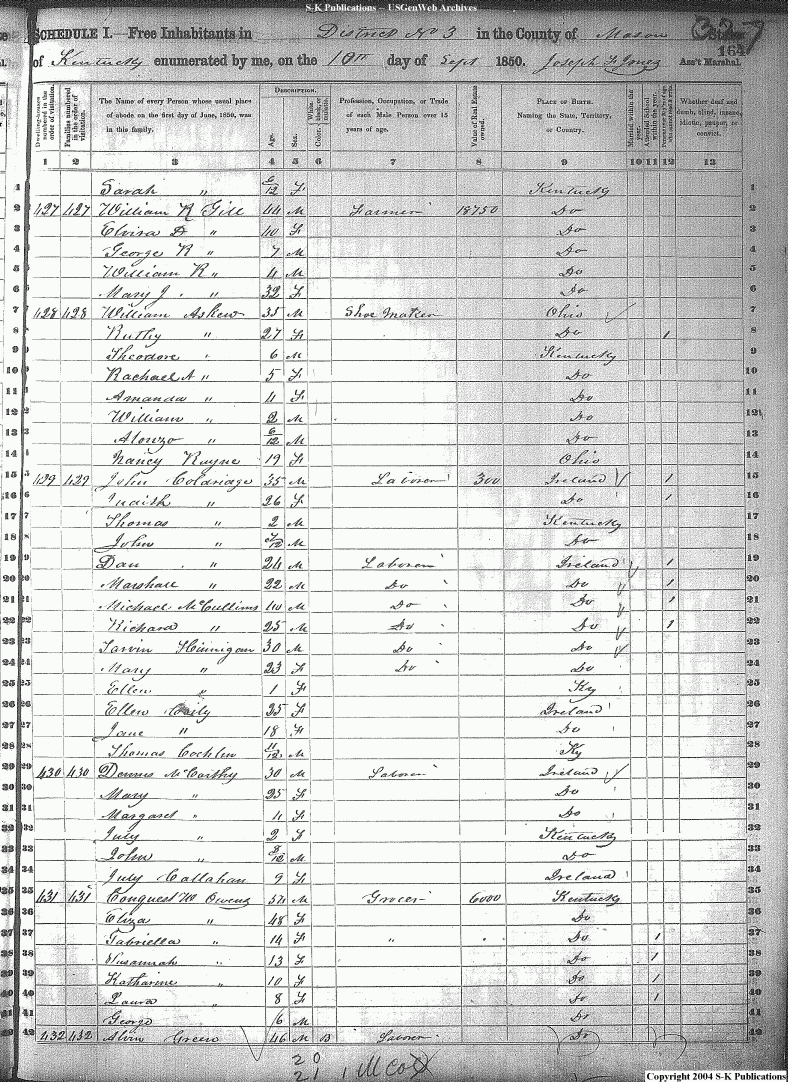 S-K Publications – USGenWeb Archives
327
SCHEDULE I.—Free Inhabitants in District No 3 in the County of Mason State
164
of Kentucky enumerated by me, on the 10th day of Sept 1850. Joseph F Jones Ass't Marshal.
DESCRIPTION.
Dwelling-houses numbered in the order of visitation. Families numbered in the order of visitation. The Name of every Person whose usual place of abode on the first day of June, 1850, was in this family. Age. Sex. Color, White, black, or mulatto. Profession, Occupation, or Trade of each Male Person over 15 years of age. Value of Real Estate owned. PLACE OF BIRTH. Naming the State, Territory, or Country. Married within the year. Attended School within the year. Whether deaf and dumb, blind, insane, idiotic, pauper, or convict.
1 2 3 4 5 6 7 8 9 10 11 12 13
1 Sarah " 6/12 F Kentucky 1
2 427 427 William R Gill 44 M Farmer 18750 Do 2
3 Elvira D " 40 F Do 3
4 George R " 7 M Do 4
5 William R " 4 M Do 5
6 Mary J. " 32 F Do 6
7 428 428 William Askew 35 M Shoe Maker Ohio 7
8 Ruthy " 27 F Do 1 8
9 Theodore " 6 M Kentucky 9
10 Rachael A " 5 F Do 10
11 Amanda " 4 F Do 11
12 William " 2 M Do 12
13 Alonzo " 6/12 M Do 13
14 Nancy Rayne 19 F Ohio 14
15 429 429 John Coldriage 35 M Laborer 300 Ireland 1 15
16 Judith " 26 F Do 1 16
17 Thomas " 2 M Kentucky 17
18 John " /12 M Do 18
19 Dan " 24 M Laborer Ireland 1 19
20 Marshall " 22 M Do Do 1 20
21 Michael McCullins 40 M Do Do 1 21
22 Richard " 25 M Do Do 1 22
23 Hinnigan 30 M Do Do 23
24 Mary " 23 F Do Do 24
25 Ellen " 1 F Ky 25
26 Ellen Caily 25 F Ireland 26
27 Jane " 18 F Do 27
28 Thomas Cochlin 11/12 M Ky 28
29 430 430 Dennis McCarthy 30 M Laborer Ireland 29
30 Mary " 25 F Do 30
31 Margaret " 4 F Do 31
32 July " 2 F Kentucky 32
33 John " 8/12 M Do 33
34 July Callahan 9 F Ireland 34
35 431 431 Conquest W Owens 54 M Grocer 6000 Kentucky 35
36 Eliza " 48 F Do 36
37 Gabriella " 14 F " Do 1 37
38 Susannah " 13 F Do 1 38
39 Katharine " 10 F Do 1 39
40 Laura " 8 F Do 1 40
41 George 6 M Do 41
42 432 432 Alvin Green 46 M B Laborer Do 42
20
21
Copyright 2004 S-K Publications